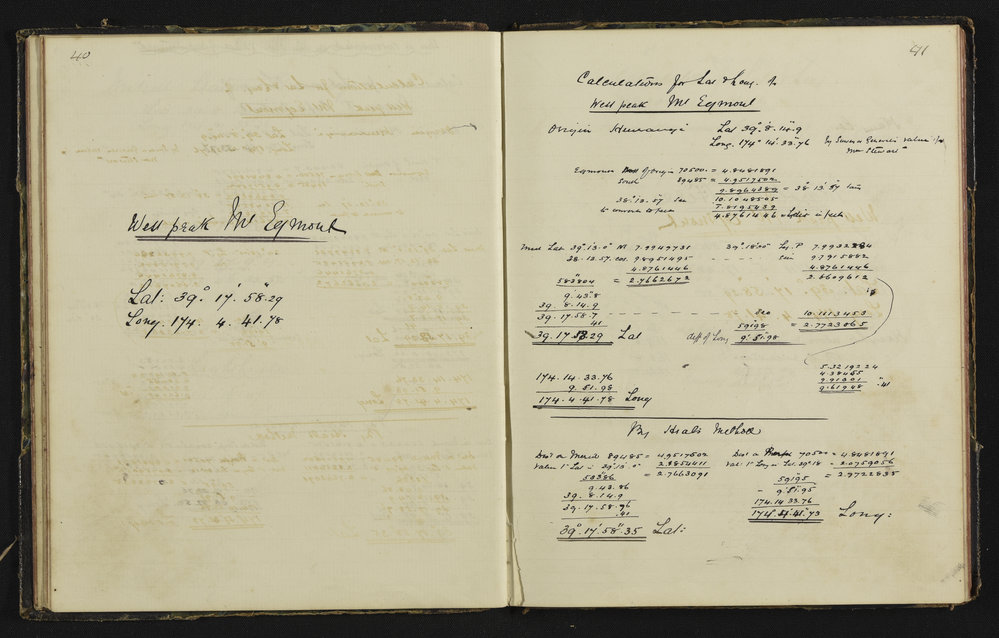 40
West peak Mt Egmont
Lat: 39° 17' 58".29
Long. 174. 4. 41.78
41
Calculations for Lat & Long. to
West peak Mt Egmont
Origin Huirangi Lat 39° 8' 14".9
Long. 174° 14' 33".76
by Surveyor General's value for
Mr Stewart"
70500 = 4.8481891
South 89485 = 4.9517502
9.8964389 = 38° 13' 57"
38° 13' 57 10.1048505
7.8195439
to convert to feet 4.8761446 in feet
Mean Lat 39° 13' 0" M 7.9949731 39° 18' 00 Log. P 7.9932284
38. 13. 57. cos 9.8951495 - - - - - sin 9.7915882
4.8761446 4.8761446
583".804 = 2.7662672 2.6609612
9. 43".8
39. 8. 14.9
39. 17. 58.7 - - - - - - sec 10.1113453
.41 591".98 = 2.7723065
39. 17 58.29 Lat diff of Long 9' 51".98
174. 14. 33.76
9. 51. 98
174. 4. 41. 78 Long
5.3219224
4.38455
9.91301
9.61948 ".41
By Heal's Method
Dist on Merid 89485 = 4.9517502 Dist on Perp 70500 = 4.8481891
Value 1" Lat = 39° 13' 0" = 2.1854411 Val 1" Long in Lat. 39° 18 = 2.0759056
583".86 = 2.7663091 591".95 = 2.7722835
9. 43. 86 9' 51".95
39. 8. 14.9 174. 14 33.76
39. 17. 58. 76 174. 4. 41. 73 Long:
.41
39°. 17'. 58".35 Lat: